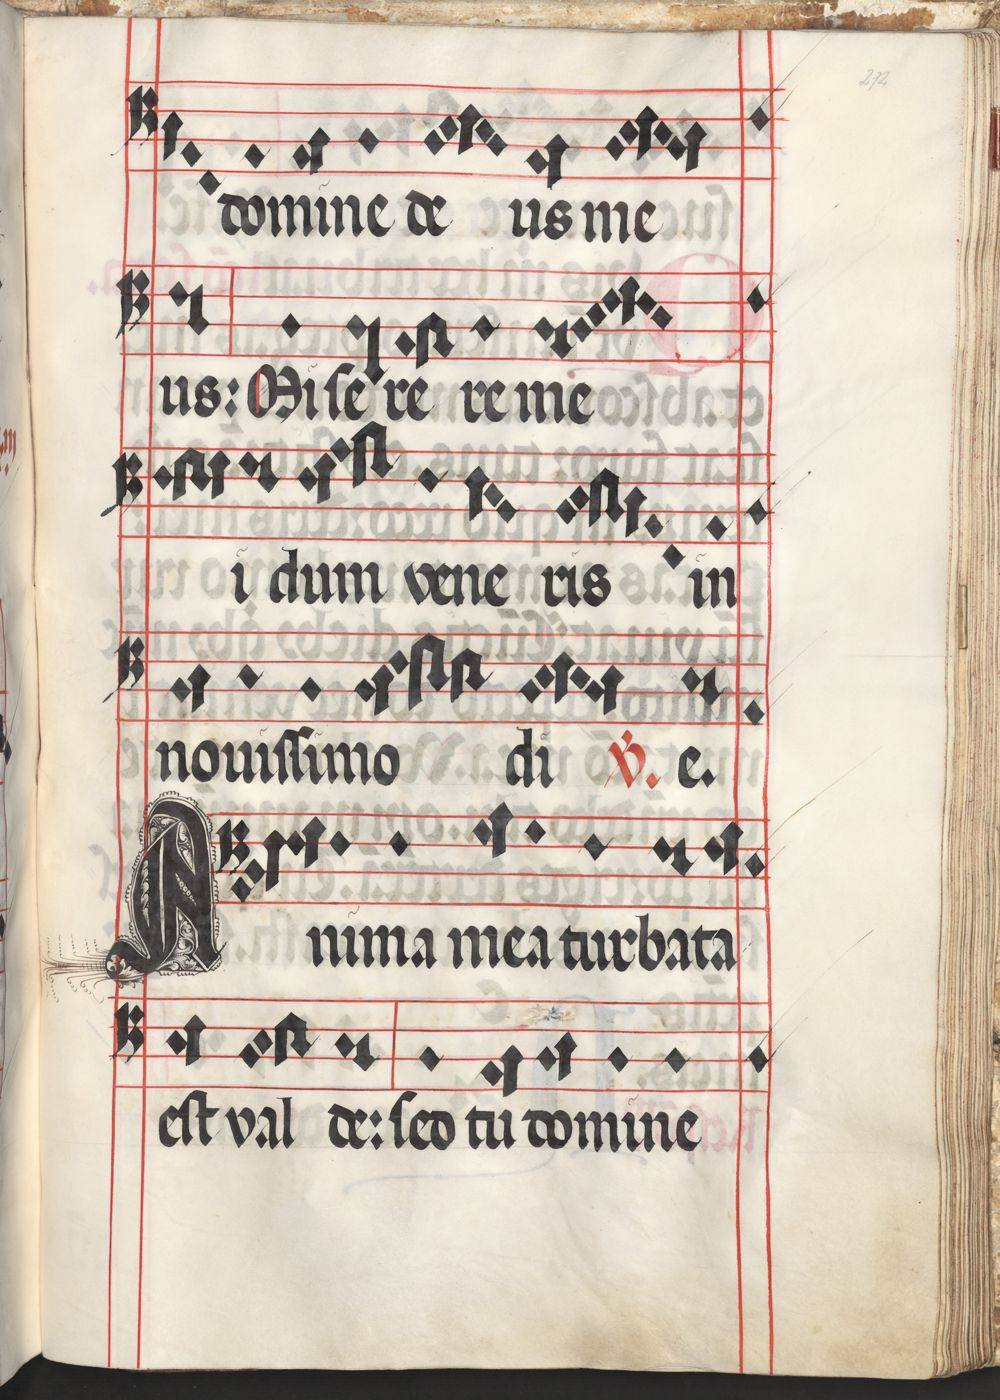 272
domine de us me
us: Mi se re re me
i dum vene ris in
nouissimo di ℣. e.
Anima mea turbata
est val de: sed tu domine